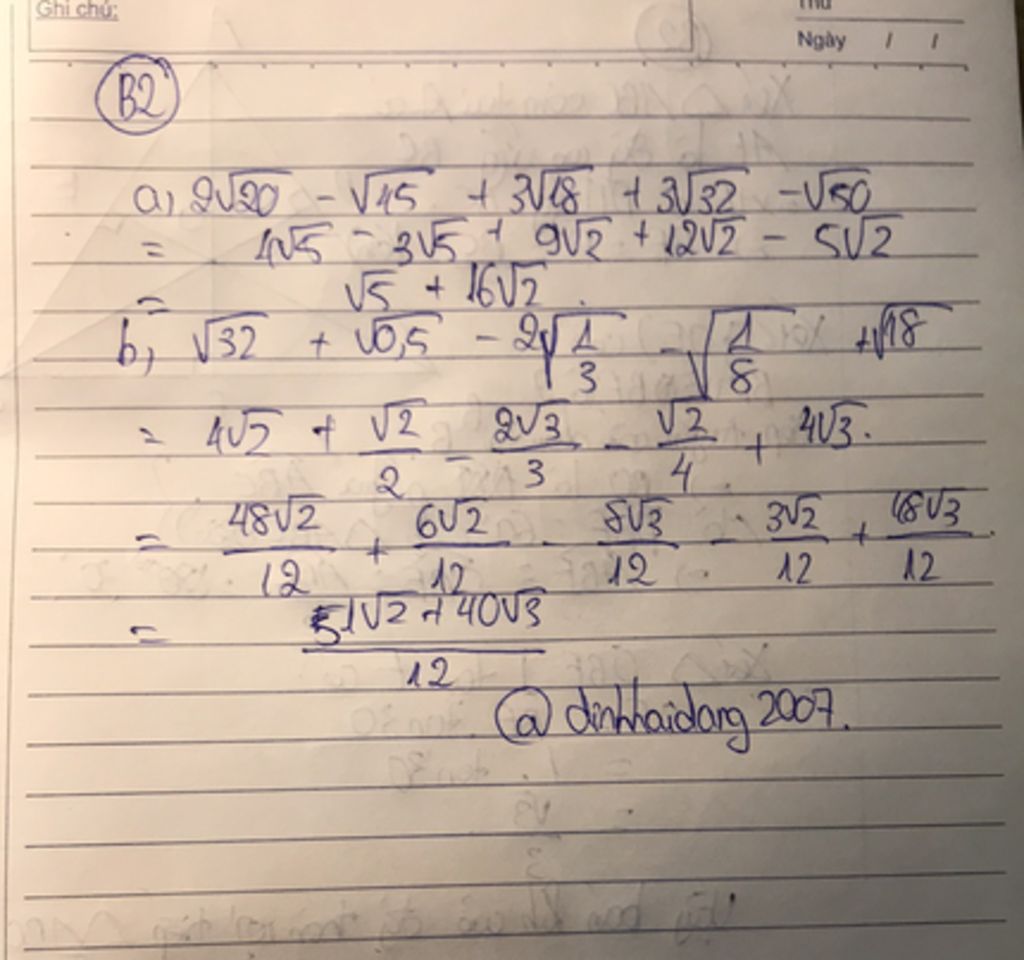 Ghi chú:
Thứ
Ngày / /
B2
a, 2√20 - √45 + 3√18 + 3√32 - √50
= 4√5 - 3√5 + 9√2 + 12√2 - 5√2
= √5 + 16√2.
b, √32 + √0,5 - 2√(1/3) - √(1/8) + √18
= 4√2 + √2/2 - 2√3/3 - √2/4 + 4√3.
= 48√2/12 + 6√2/12 - 8√3/12 - 3√2/12 + 48√3/12.
= (51√2 + 40√3)/12
@ dinhhaidang 2007.